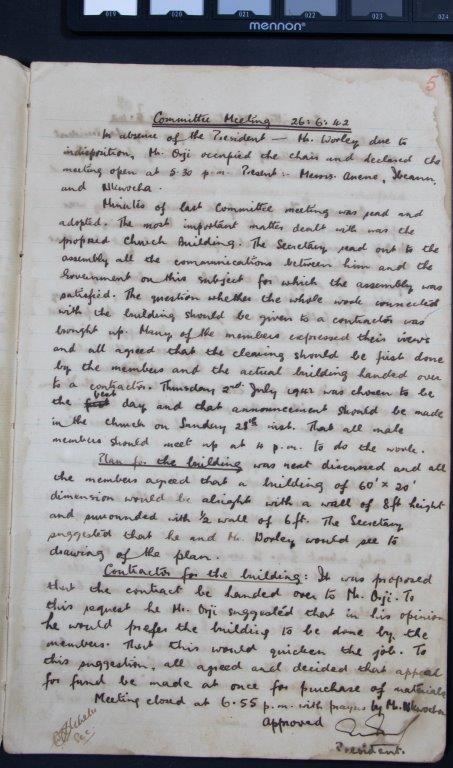 019 020 021 022 023 024
mennon
5
Committee Meeting 26:6:42
In absence of the President — Mr. Worley due to
indisposition, Mr. Orji occupied the chair and declared the
meeting open at 5.30 p.m. Present:- Messrs. Anene, Ibeanu,
and Nkwocha.
Minutes of last Committee meeting was read and
adopted. The most important matter dealt with was the
proposed Church Building. The Secretary read out to the
assembly all the communications between him and the
Government on this subject for which the assembly was
satisfied. The question whether the whole work connected
with the building should be given to a contractor was
brought up. Many of the members expressed their views
and all agreed that the clearing should be first done
by the members and the actual building handed over
to a contractor. Thursday 2nd July 1942 was chosen to be
the best day and that announcement should be made
in the church on Sunday 28th inst. That all male
members should meet up at 4 p.m. to do the work.
Plan for the building was next discussed and all
the members agreed that a building of 60' x 20'
dimension would be alright with a wall of 8ft height
and surrounded with 1/2 wall of 6ft. The Secretary
suggested that he and Mr. Worley would see to
drawing of the plan.
Contractor for the building: It was proposed
that the contract be handed over to Mr. Orji. To
this request he Mr. Orji suggested that in his opinion
he would prefer the building to be done by the
members. That this would quicken the job. To
this suggestion, all agreed and decided that appeal
for fund be made at once for purchase of materials
Meeting closed at 6.55 p.m. with prayer by Mr. Nkwocha
Approved
Sec.
President.